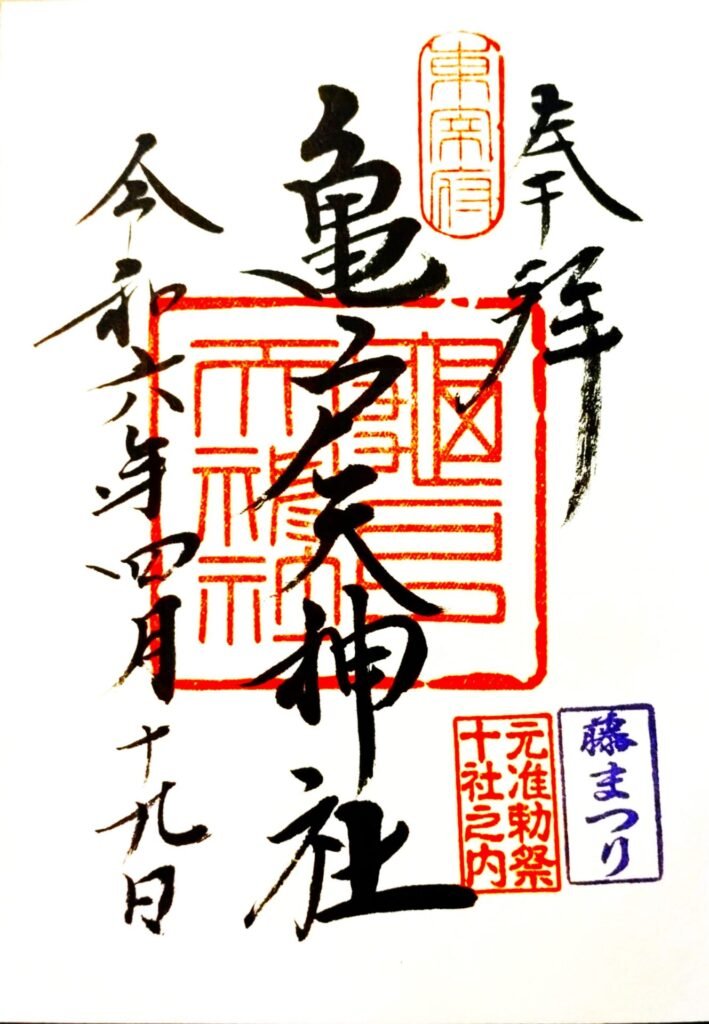 奉拝
東宰府
亀戸天神社
令和六年四月十九日
藤まつり
元准勅祭
十社之内